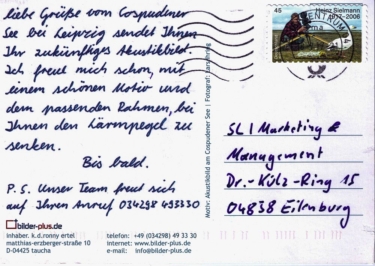 liebe Grüße vom Cospudener
See bei Leipzig sendet Ihnen
Ihr zukünftiges Akustikbild.
Ich freue mich schon, mit
einem schönen Motiv und
dem passenden Rahmen, bei
Ihnen den Lärmpegel zu
senken.
Bis bald.
P.S. Unser Team freut sich
auf Ihren Anruf 034298 493330
bilder-plus.de
inhaber. k.d.ronny ertel
matthias-erzberger-straße 10
D-04425 taucha
telefon: +49 (034298) 49 33 30
internet: www.bilder-plus.de
e-mail: info@bilder-plus.de
Motiv: Akustikbild am Cospudener See | Fotograf:
45
Heinz Sielmann
1917-2006
SL | Marketing &
Management
Dr.-Külz-Ring 15
04838 Eilenburg